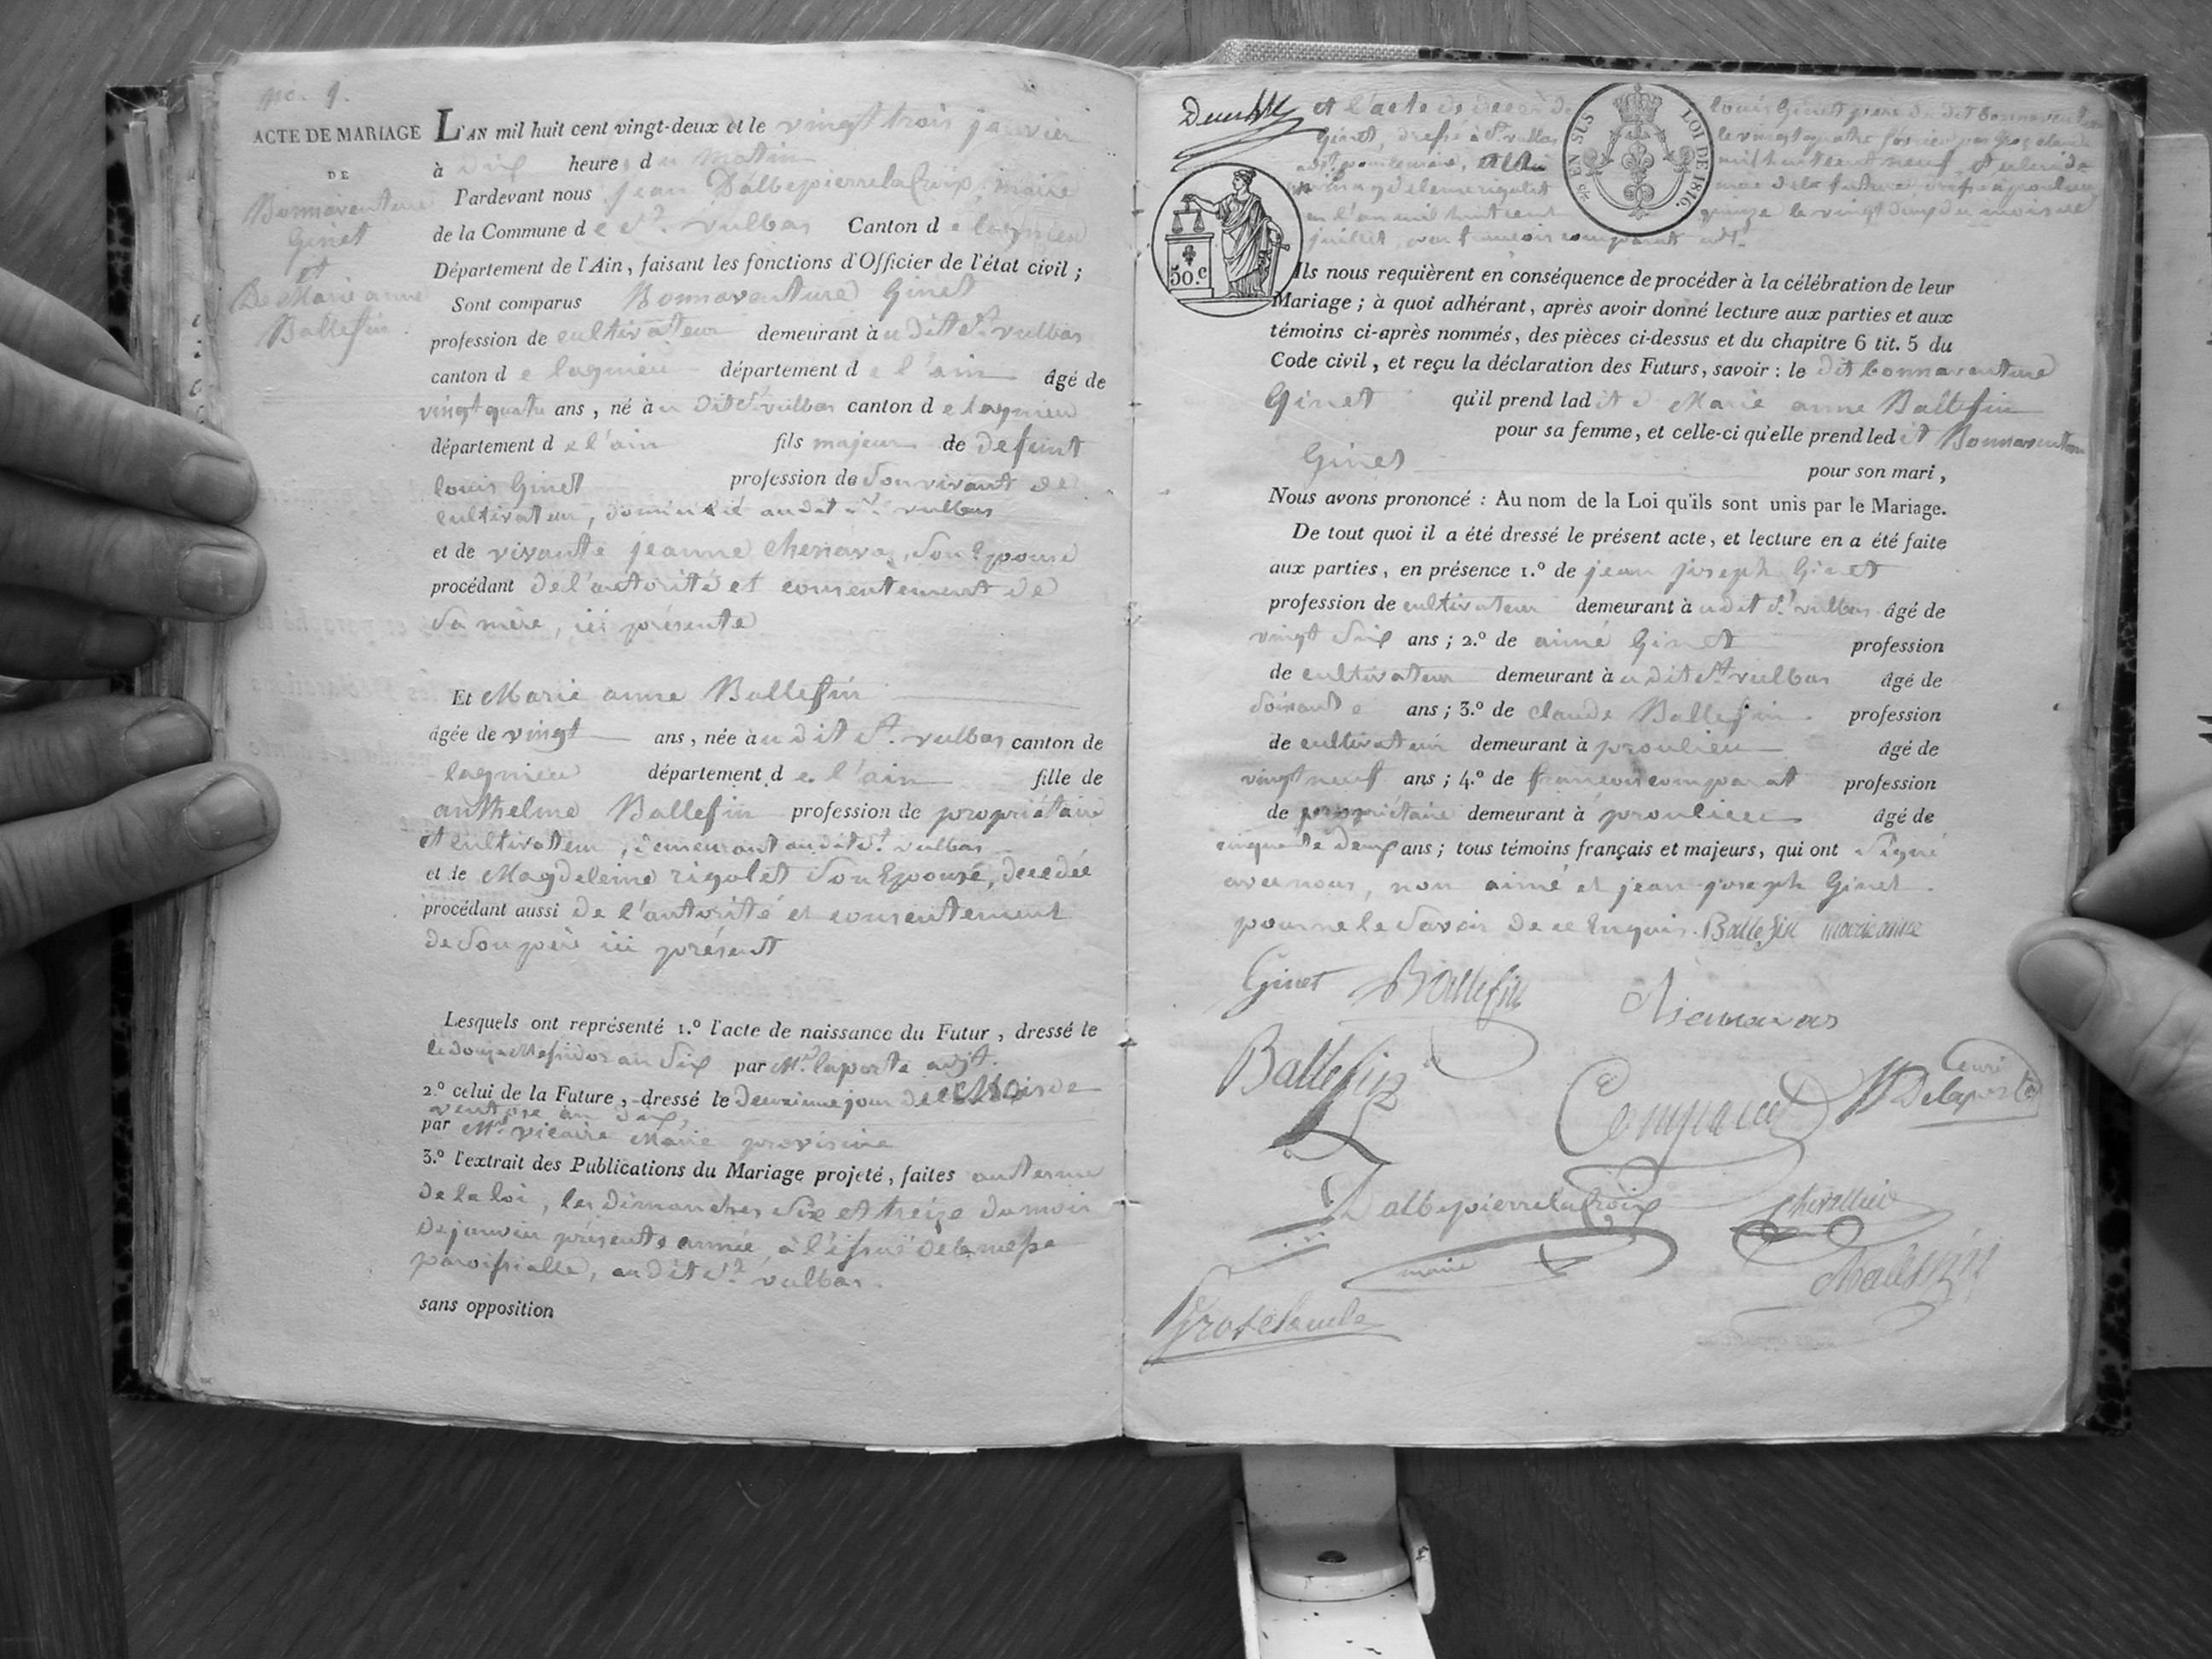 no. 9.
ACTE DE MARIAGE
DE
Bonnaventure
Ginet
et
De Marie anne
Ballefin
L'AN mil huit cent vingt-deux et le vingt trois janvier
à dix heures du matin
Pardevant nous jean Dalbepierrelacroix, maire
de la Commune de St. vulbas Canton de lagnieu
Département de l'Ain, faisant les fonctions d'Officier de l'état civil ;
Sont comparus Bonnaventure Ginet
profession de cultivateur demeurant àudit St. vulbas
canton de lagnieu département de l'ain âgé de
vingt quatre ans, né àu dit St. vulbas canton de lagnieu
département de l'ain fils majeur de defunt
louis Ginet profession de Son vivant de
cultivateur, domicilié audit St. vulbas
et de vivante jeanne chenavaz, Son Epouse
procédant de l'autorité et consentement de
Sa mère, ici présente
Et Marie anne Ballefin
âgée de vingt ans, née àu dit St. vulbas canton de
lagnieu département de l'ain fille de
anthelme Ballefin profession de propriétaire
et cultivateur, demeurant audit St. vulbas
et de Magdeleine rigolet Son Epouse, decedée
procédant aussi de l'autorité et consentement
de Son père ici présent
Lesquels ont représenté 1.º l'acte de naissance du Futur, dressé le
le douze Messidor an Six par Mr. laporte adjt.
2.º celui de la Future, dressé le deuxieme jour de Mois de
ventose an dix,
par Mr. vicaire Maire provisoire
3.º l'extrait des Publications du Mariage projeté, faites au terme
de la loi, les dimanches Six et treize du mois
de janvier présente année, à l'issue de la messe
paroissialle, audit St. vulbas.
sans opposition
et l'acte de decès de louis Ginet pere du dit bonnaventure
Ginet, dressé à St. vulbas le vingt quatre fevrier par Grosclaude
mil huit cent neuf, et celui de
magdeleine rigolet mere de la future, dressé à proulieu
en l'an mil huit cent quinze le vingt deux du mois de
juillet, par françois comparat adt.
EN SUS
LOI DE 1816.
50.c
Ils nous requièrent en conséquence de procéder à la célébration de leur
Mariage ; à quoi adhérant, après avoir donné lecture aux parties et aux
témoins ci-après nommés, des pièces ci-dessus et du chapitre 6 tit. 5 du
Code civil, et reçu la déclaration des Futurs, savoir : le dit bonnaventure
Ginet qu'il prend ladite Marie anne Ballefin
pour sa femme, et celle-ci qu'elle prend ledit Bonnaventure
Ginet pour son mari,
Nous avons prononcé : Au nom de la Loi qu'ils sont unis par le Mariage.
De tout quoi il a été dressé le présent acte, et lecture en a été faite
aux parties, en présence 1.º de jean joseph Ginet
profession de cultivateur demeurant àudit St. vulbas âgé de
vingt Six ans ; 2.º de aimé Ginet profession
de cultivateur demeurant àudit St. vulbas âgé de
Soixante ans ; 3.º de claude Ballefin profession
de cultivateur demeurant à proulieu âgé de
vingt neuf ans ; 4.º de françois comparat profession
de propriétaire demeurant à proulieu âgé de
cinquante deux ans ; tous témoins français et majeurs, qui ont Signé
avec nous, non aimé et jean joseph Ginet
pour ne le Savoir de ce Enquis. Ballefin marie anne
Ginet Ballefin
Ballefin Comparat Delaporte
Dalbepierrelacroix Chevallier
maire
Grosclaude